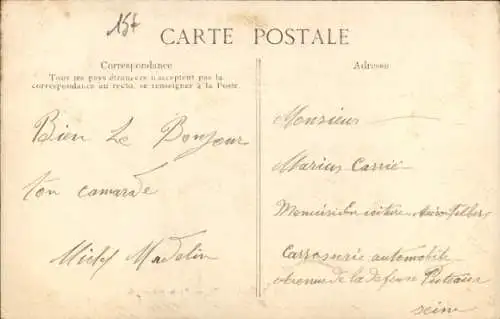 15f
CARTE POSTALE
Correspondance
Tous les pays étrangers n'acceptent pas la
correspondance au recto, se renseigner à la Poste.
Adresse
Bien Le Bonjour
ton camarde
Michel Madelin
Monsieur
Marius Carrie
en voiture
Carrosserie automobile
Avenue de la defense Puteaux
seine